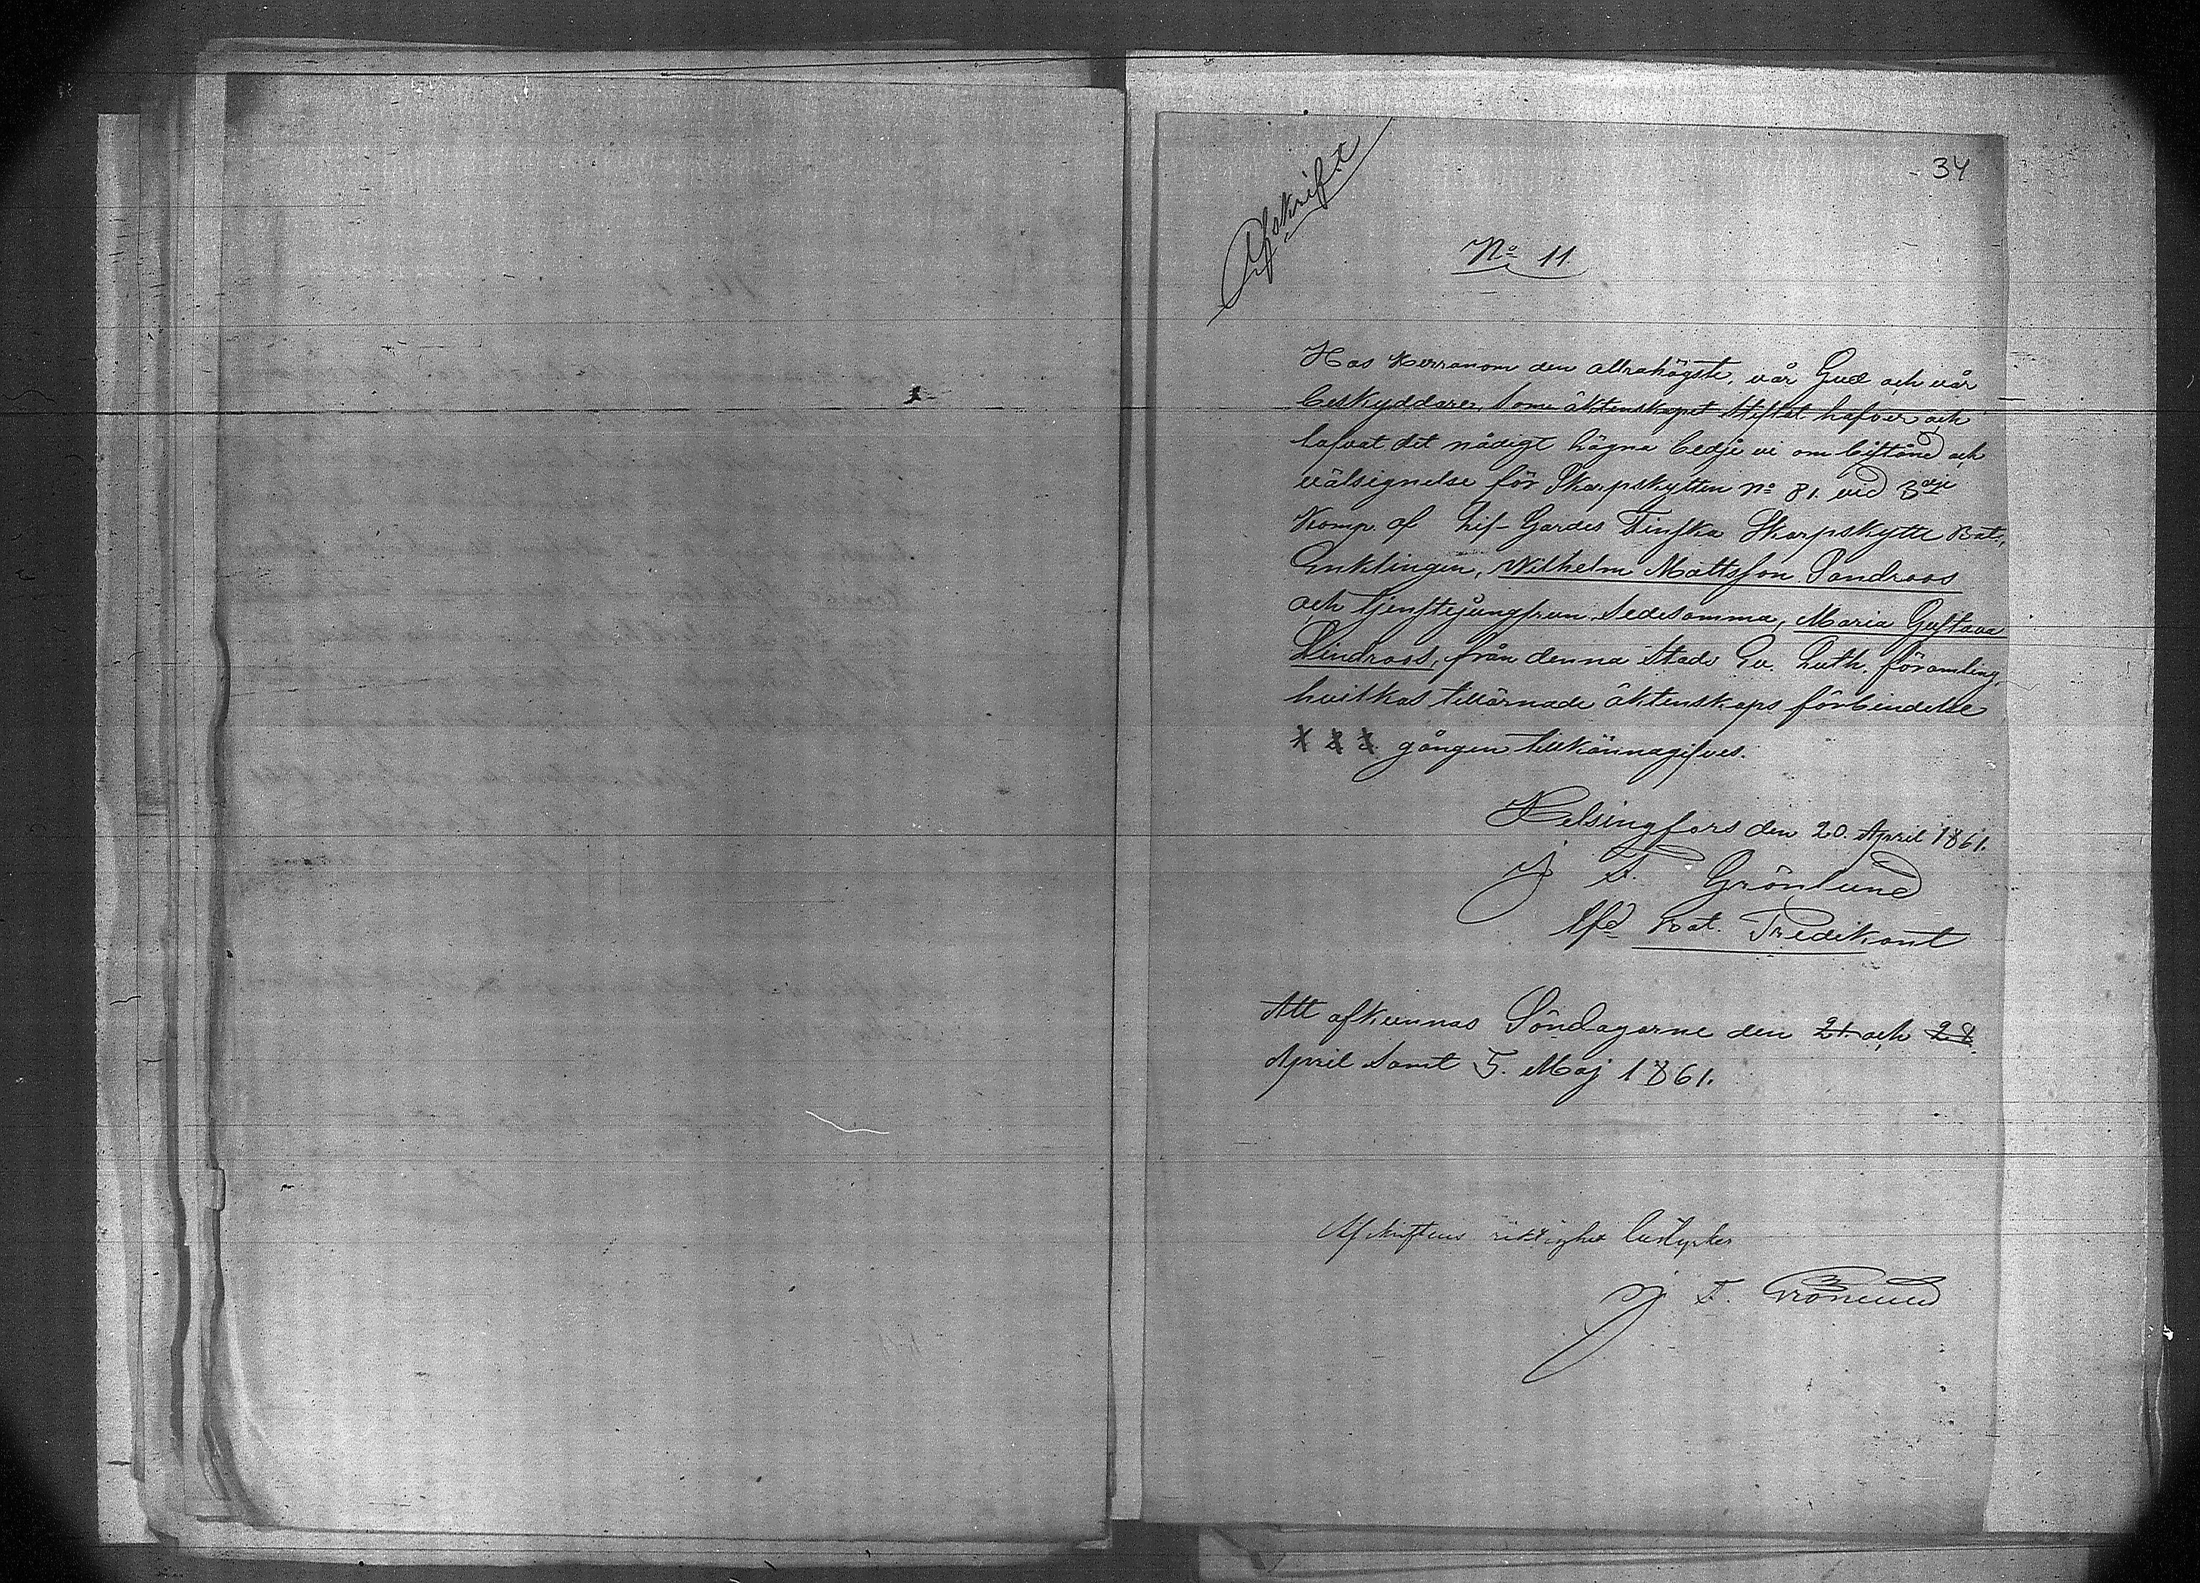 34
Afskrift
No 11.
Hos Herranom den allrahögste, vår Gud och vår
beskyddare, som äktenskapet stiftat hafver och
lofvat det nådigt hägna bedje vi om bistånd och
välsignelse för Skarpskytten No 81. vid 3dje
Komp. af Lif-Gardes Finska Skarpskytte Bat.,
Enklingen, Wilhelm Mattsson Sandroos
och tjenstejungfrun, Sedesamma, Maria Gustava
Lindroos, från denna Stads Ev. Luth. församling,
hvilkas tillärnade äktenskaps förbindelse
1 2 3. gången tillkännagifves.
Helsingfors den 20. April 1861.
J F. Grönlund
Bat. Predikant
Att afkunnas Söndagarne den 21. och 28.
April samt 5. Maj 1861.
Afskriftens riktighet bestyrker
J. F. Grönlund